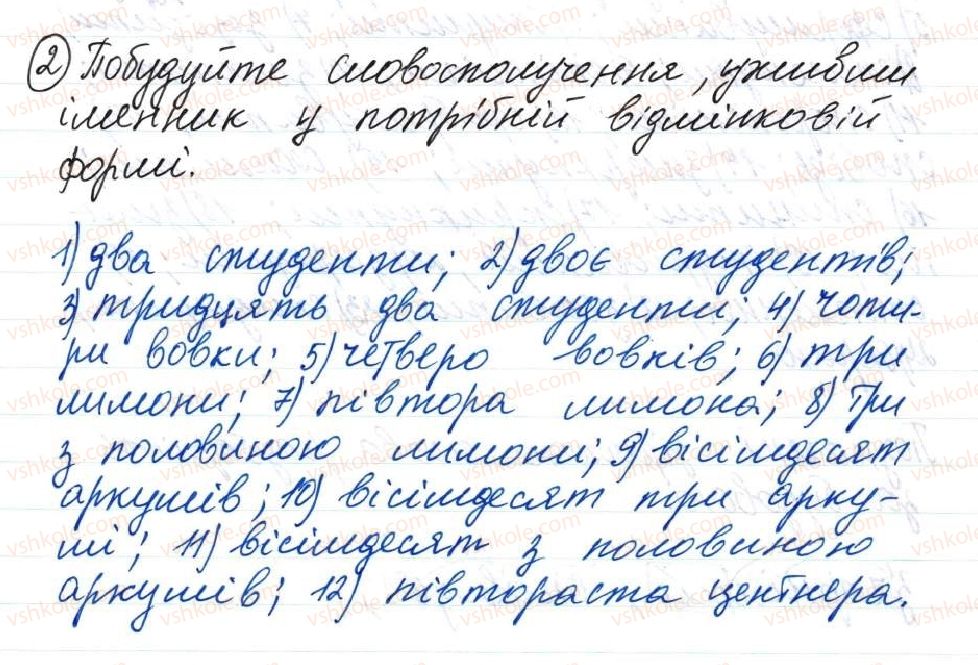 2) Побудуйте словосполучення, уживши
іменник у потрібній відмінковій
формі.
1) два студенти; 2) двоє студентів;
3) тридцять два студенти; 4) чоти-
ри вовки; 5) четверо вовків; 6) три
лимони; 7) півтора лимона; 8) три
з половиною лимони; 9) вісімдесят
аркушів; 10) вісімдесят три арку-
ші; 11) вісімдесят з половиною
аркушів; 12) півтораста центнера.